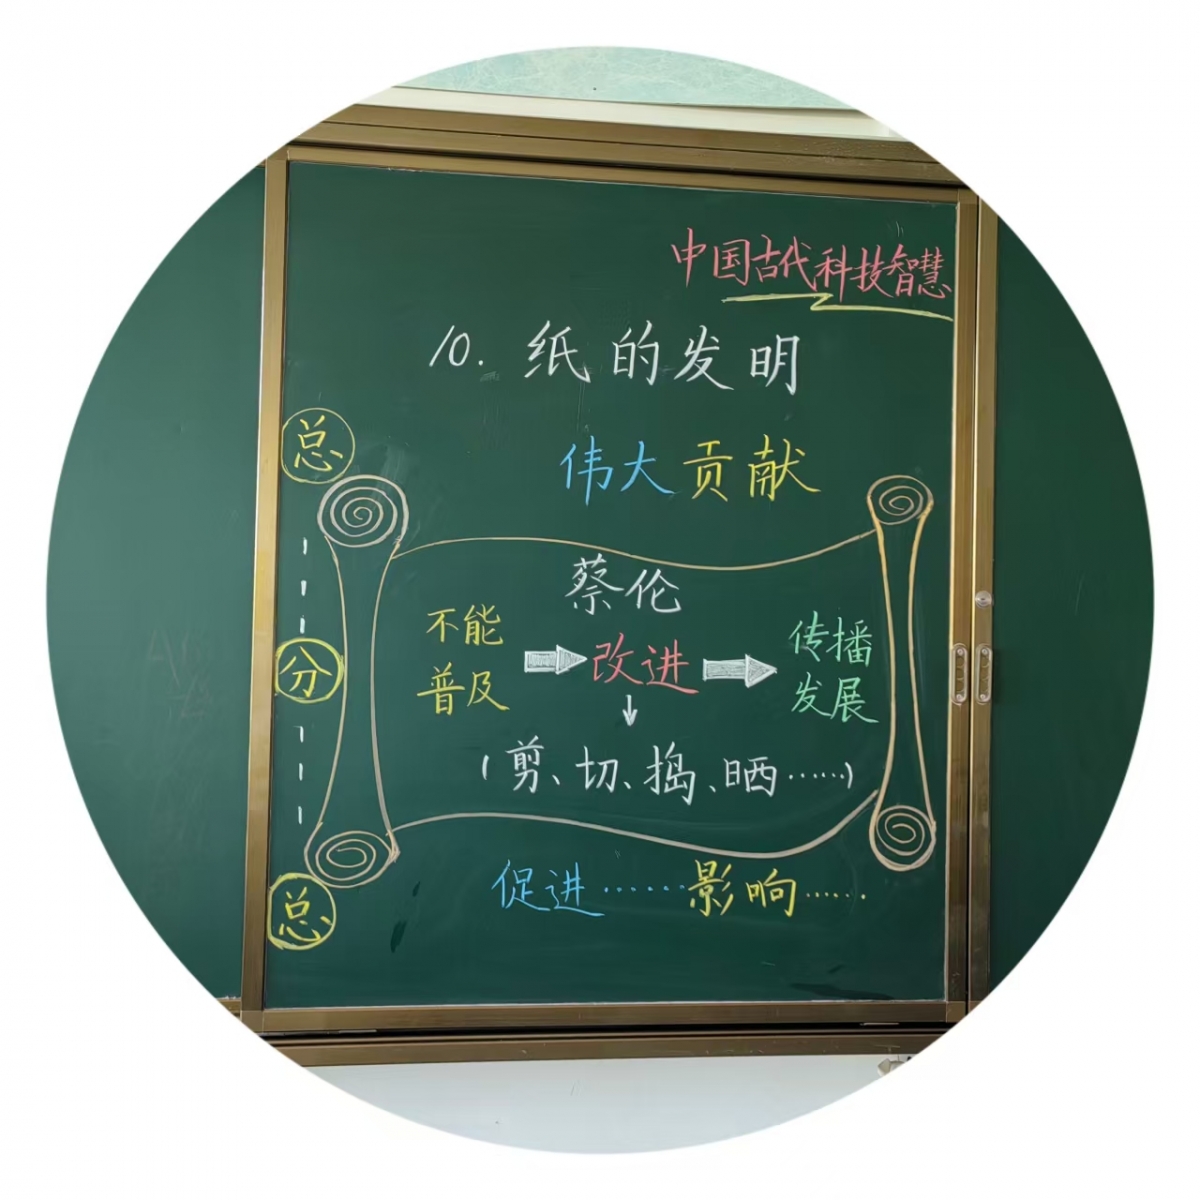 中国古代科技智慧
10. 纸的发明
总
伟大贡献
蔡伦
不能
普及
改进
传播
发展
分
(剪、切、捣、晒……)
促进……影响……
总